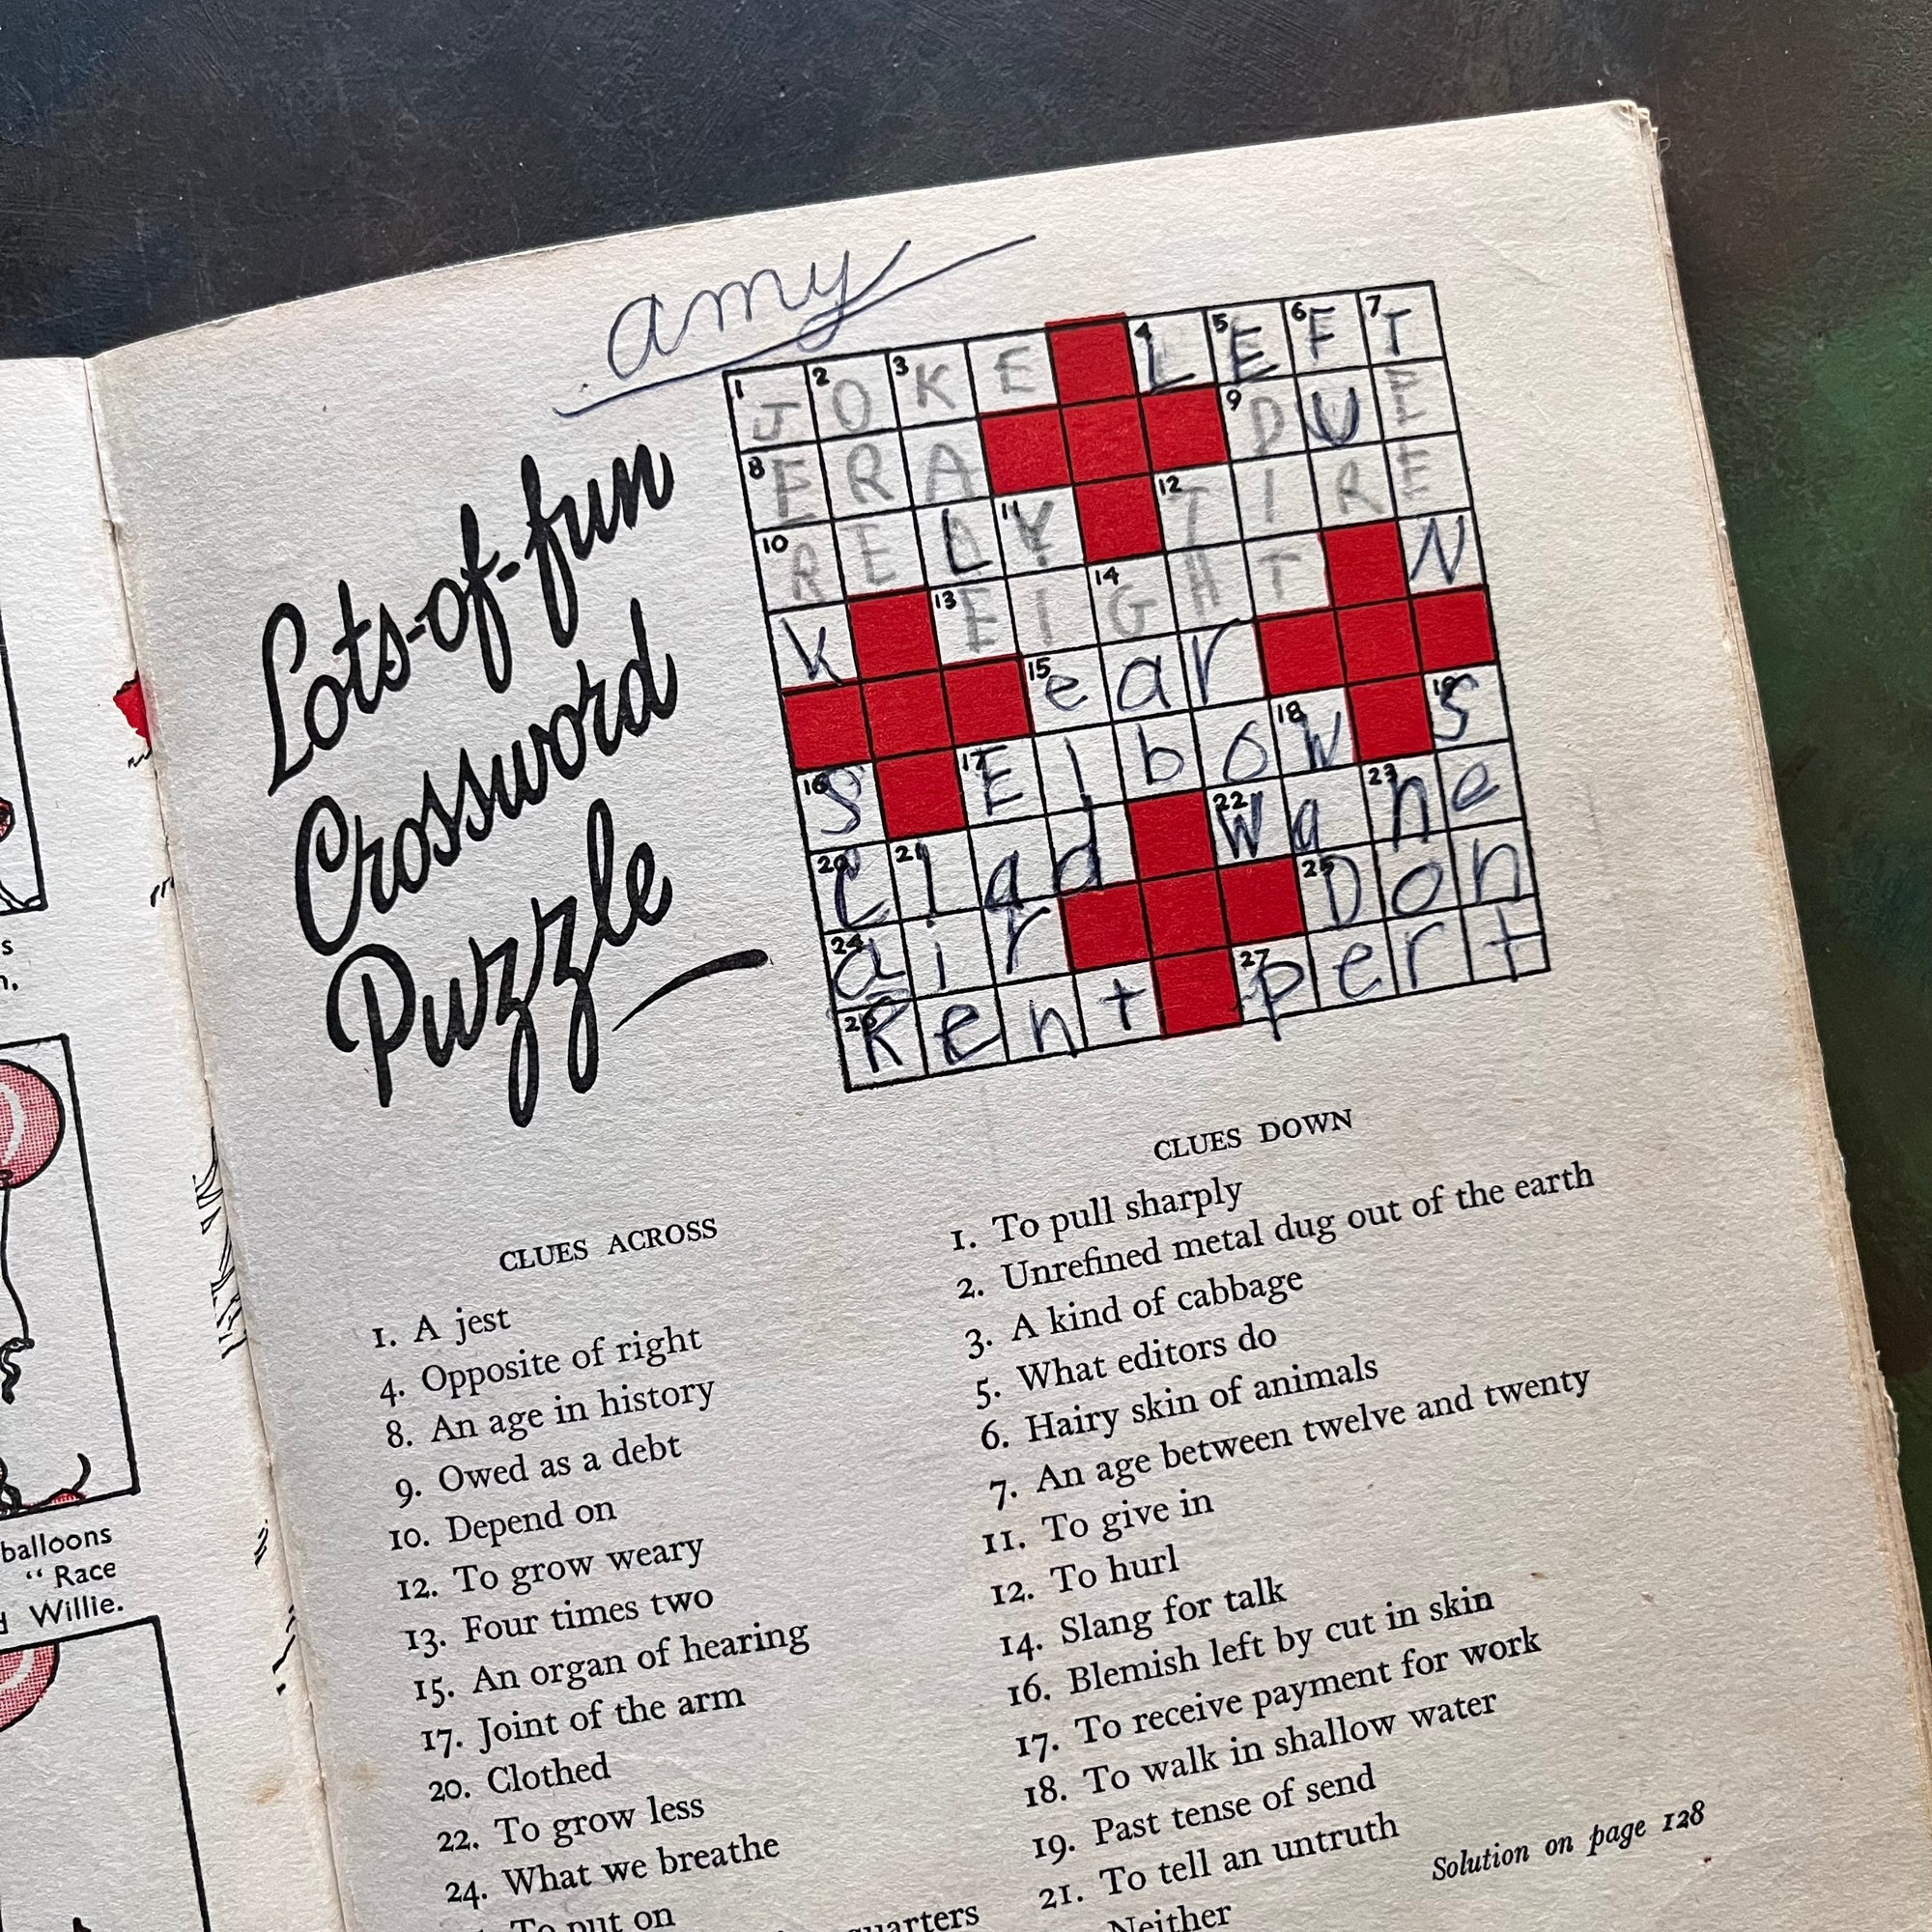 amy
Lots-of-fun
Crossword
Puzzle
1 J 2 O 3 K E 4 L 5 E 6 F 7 T
8 E R A 9 D U E
10 R E L 11 Y 12 T I R E
K 13 E I 14 G H T N
15 e a r
16 S 17 E l b o 18 w 19 S
20 C 21 l a d 22 W a 23 n e
24 a i r 25 D o n
26 R e n t 27 p e r t
CLUES ACROSS
1. A jest
4. Opposite of right
8. An age in history
9. Owed as a debt
10. Depend on
12. To grow weary
13. Four times two
15. An organ of hearing
17. Joint of the arm
20. Clothed
22. To grow less
24. What we breathe
To put on
quarters
CLUES DOWN
1. To pull sharply
2. Unrefined metal dug out of the earth
3. A kind of cabbage
5. What editors do
6. Hairy skin of animals
7. An age between twelve and twenty
11. To give in
12. To hurl
14. Slang for talk
16. Blemish left by cut in skin
17. To receive payment for work
18. To walk in shallow water
19. Past tense of send
21. To tell an untruth
Neither
Solution on page 128
balloons
"Race
Willie.